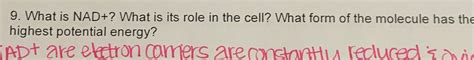 9. What is NAD+? What is its role in the cell? What form of the molecule has the
highest potential energy?
NAD+ are eletron carriers are constantly reduced &